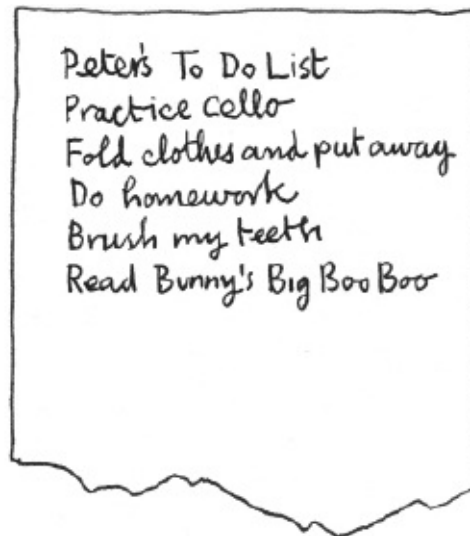 Peter's To Do List
Practice Cello
Fold clothes and put away
Do homework
Brush my teeth
Read Bunny's Big Boo Boo